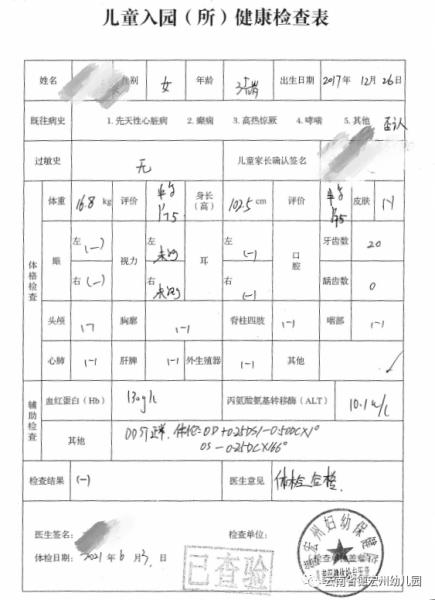 儿童入园（所）健康检查表
姓名 性别 女 年龄 3岁 出生日期 2017年 12月 26日
既往病史 1. 先天性心脏病 2. 癫痫 3. 高热惊厥 4. 哮喘 5. 其他 否认
过敏史 无 儿童家长确认签名
体格检查
体重 16.8 kg 评价 身长（高） 102.5 cm 评价 皮肤 (-)
眼 左 (-) 视力 左 未测 耳 左 (-) 口腔 牙齿数 20
右 (-) 右 未测 右 (-) 龋齿数 0
头颅 (-) 胸廓 (-) 脊柱四肢 (-) 咽部 (-)
心肺 (-) 肝脾 (-) 外生殖器 (-) 其他
辅助检查
血红蛋白（Hb） 130g/L 丙氨酸氨基转移酶（ALT） 10.1 u/L
其他 DDST正常. OD+0.25DS/-0.50DC×1°
OS-0.25DC×166°
检查结果 (-) 医生意见 体检合格.
医生签名： 检查单位：
体检日期：2021年 6月 3日
已查验
宏州妇幼保健
云南省德宏州幼儿园